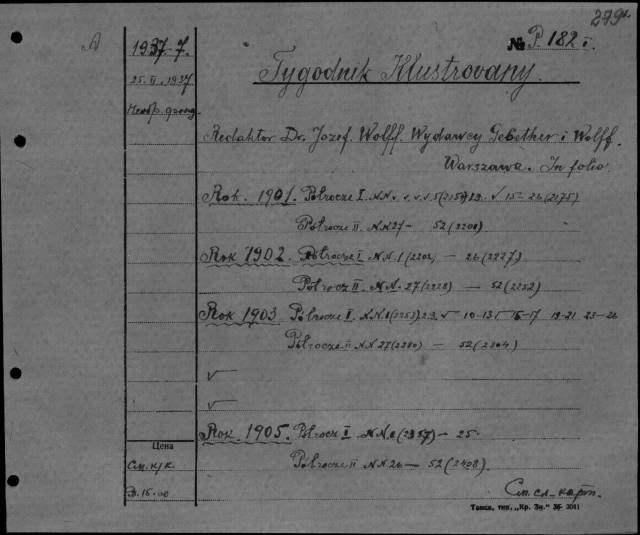 279
№ P. 182 i.
1937-7.
25. II. 1937
Tygodnik Illustrowany.
Redaktor Dr. Jozef. Wolff. Wydawcy Gebether i Wolff.
Warszawa. In folio
Rok. 1901. Półrocze I. NN v. v. v. 5 (2157) v 15 - 26 (2175)
Półrocze II. NN 27 - 52 (2200)
Rok 1902. Półrocze I NN. 1 (2202) - 26 (2227)
Półrocz II. NN. 27 (2228) - 52 (2252)
Rok 1903 Półrocze I. NN 1 (2253) v 10-13 v 16-17 19-21 23-26
Półrocze II NN 27 (2280) - 52 (2304)
v
v
Rok. 1905. Półrocz I NN. - 25
Półrocze II NN 26 - 52 (2408)
Цена
См. к/к
См. сл. карт.
Томск, тип. „Кр. Зн." 3041